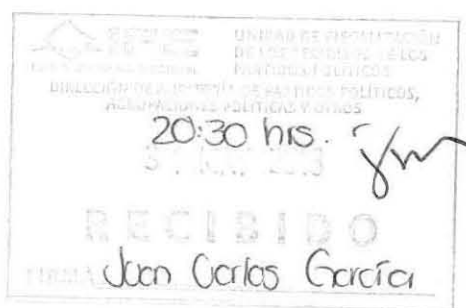 UNIDAD DE FISCALIZACIÓN
DE LOS RECURSOS DE LOS
PARTIDOS POLÍTICOS
DIRECCIÓN DE AUDITORÍA DE PARTIDOS POLÍTICOS,
AGRUPACIONES POLÍTICAS Y OTROS
20:30 hrs.
RECIBIDO
FIRMA Juan Carlos García